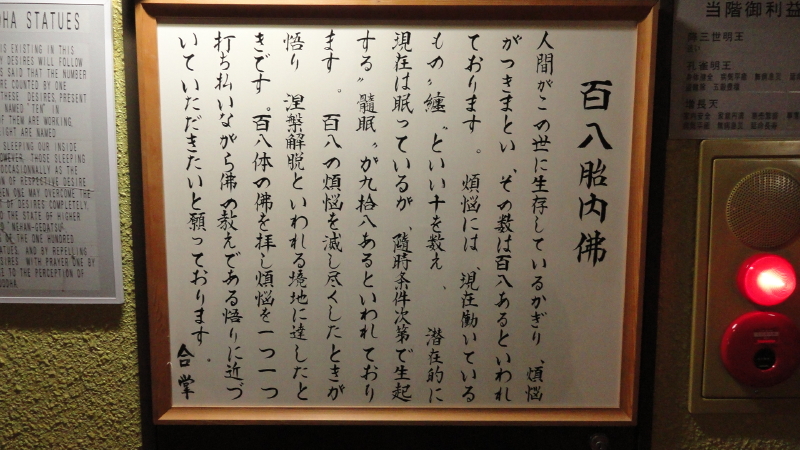 百八胎内佛
人間がこの世に生存しているかぎり、煩悩
がつきまとい、その数は百八あるといわれ
ております。煩悩には、現在働いている
もの〃纏〃といい十を数え、潜在的に
現在は眠っているが、隨時条件次第で生起
する〃髓眠〃が九拾八あるといわれており
ます。百八の煩悩を滅し尽くしたときが
悟り 涅槃解脱といわれる境地に達したと
きです。百八体の佛を拝し煩悩を一つ一つ
打ち払いながら佛の教えである悟りに近づ
いていただきたいと願っております。
合掌
当階御利益
降三世明王
孔雀明王
増長天
DHA STATUES
IS EXISTING IN THIS
Y DESIRES WILL FOLLOW
S SAID THAT THE NUMBER
RE COUNTED BY ONE
THESE DESIRES, PRESENT
NAMED "TEN" IN
OF THEM ARE WORKING.
IGHT ARE NAMED
SLEEPING OUR INSIDE
HOWEVER, THOSE SLEEPING
OCCASIONALLY AS THE
ON OF RESPECTIVE DESIRE
HEN ONE MAY OVERCOME THE
OF DESIRES COMPLETELY
O THE STATE OF HIGHER
NEHAN-GEDATSU
OF THE ONE HUNDRED
ATUES, AND BY REPELLING
SIRES WITH PRAYER ONE BY
S TO THE PERCEPTION OF
UDDHA